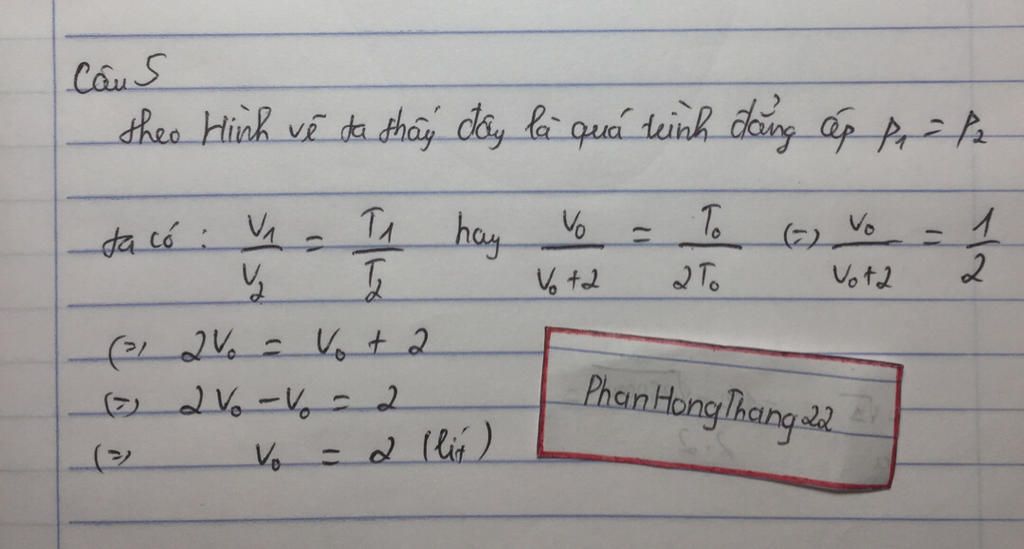 Câu 5
theo Hình vẽ ta thấy đây là quá trình đẳng áp P₁ = P₂
ta có : V₁/V₂ = T₁/T₂ hay V₀/(V₀+2) = T₀/2T₀ (=) V₀/(V₀+2) = 1/2
(=) 2V₀ = V₀ + 2
(=) 2V₀ - V₀ = 2
(=) V₀ = 2 (lít)
PhanHongThang22